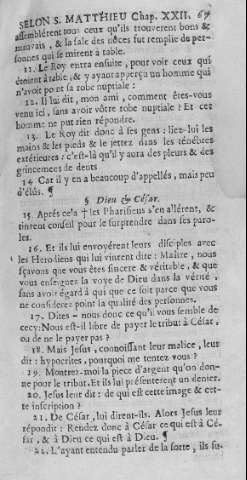 SELON S. MATTHIEU Chap. XXII. 67
assemblérent tous ceux qu'ils trouverent bons &
mauvais, & la sale des nôces fut remplie de per-
sonnes qui se mirent à table.
11. Le Roy entra ensuite, pour voir ceux qui
étoient à table, & y ayant apperçu un homme qui
n'avoit point sa robe nuptiale:
12. Il lui dit, mon ami, comment êtes-vous
venu ici, sans avoir vôtre robe nuptiale? Et cet
homme ne put rien répondre.
13. Le Roy dit donc à ses gens: liez-lui les
mains & les pieds & le jettez dans les ténébres
extérieures: c'est-là qu'il y aura des pleurs & des
grincemens de dents
14 Car il y en a beaucoup d'appellés, mais peu
d'élûs. ¶
§ Dieu & César.
15 Aprés cela † les Pharisiens s'en allérent, &
tinrent conseil pour le surprendre dans ses paro-
les.
16. Et ils lui envoyérent leurs disciples avec
les Herodiens qui lui vinrent dire: Maître, nous
sçavons que vous êtes sincere & véritable, & que
vous enseignez la voye de Dieu dans la vérité,
sans avoir égard à qui que ce soit parce que vous
ne considerez point la qualité des personnes.
17. Dites-nous donc ce qu'il vous semble de
cecy: Nous est-il libre de payer le tribut à César,
ou de ne le payer pas?
18. Mais Jesus, connoissant leur malice, leur
dit: hypocrites, pourquoi me tentez vous?
19. Montrez-moi la piece d'argent qu'on don-
ne pour le tribut. Et ils lui présenterent un denier.
20. Jesus leur dit: de qui est cette image & cet-
te inscription?
21. De César, lui dirent-ils. Alors Jesus leur
répondit: Rendez donc à César ce qui est à Cé-
sar, & à Dieu ce qui est à Dieu. ¶
22. L'ayant entendu parler de la sorte, ils fu-